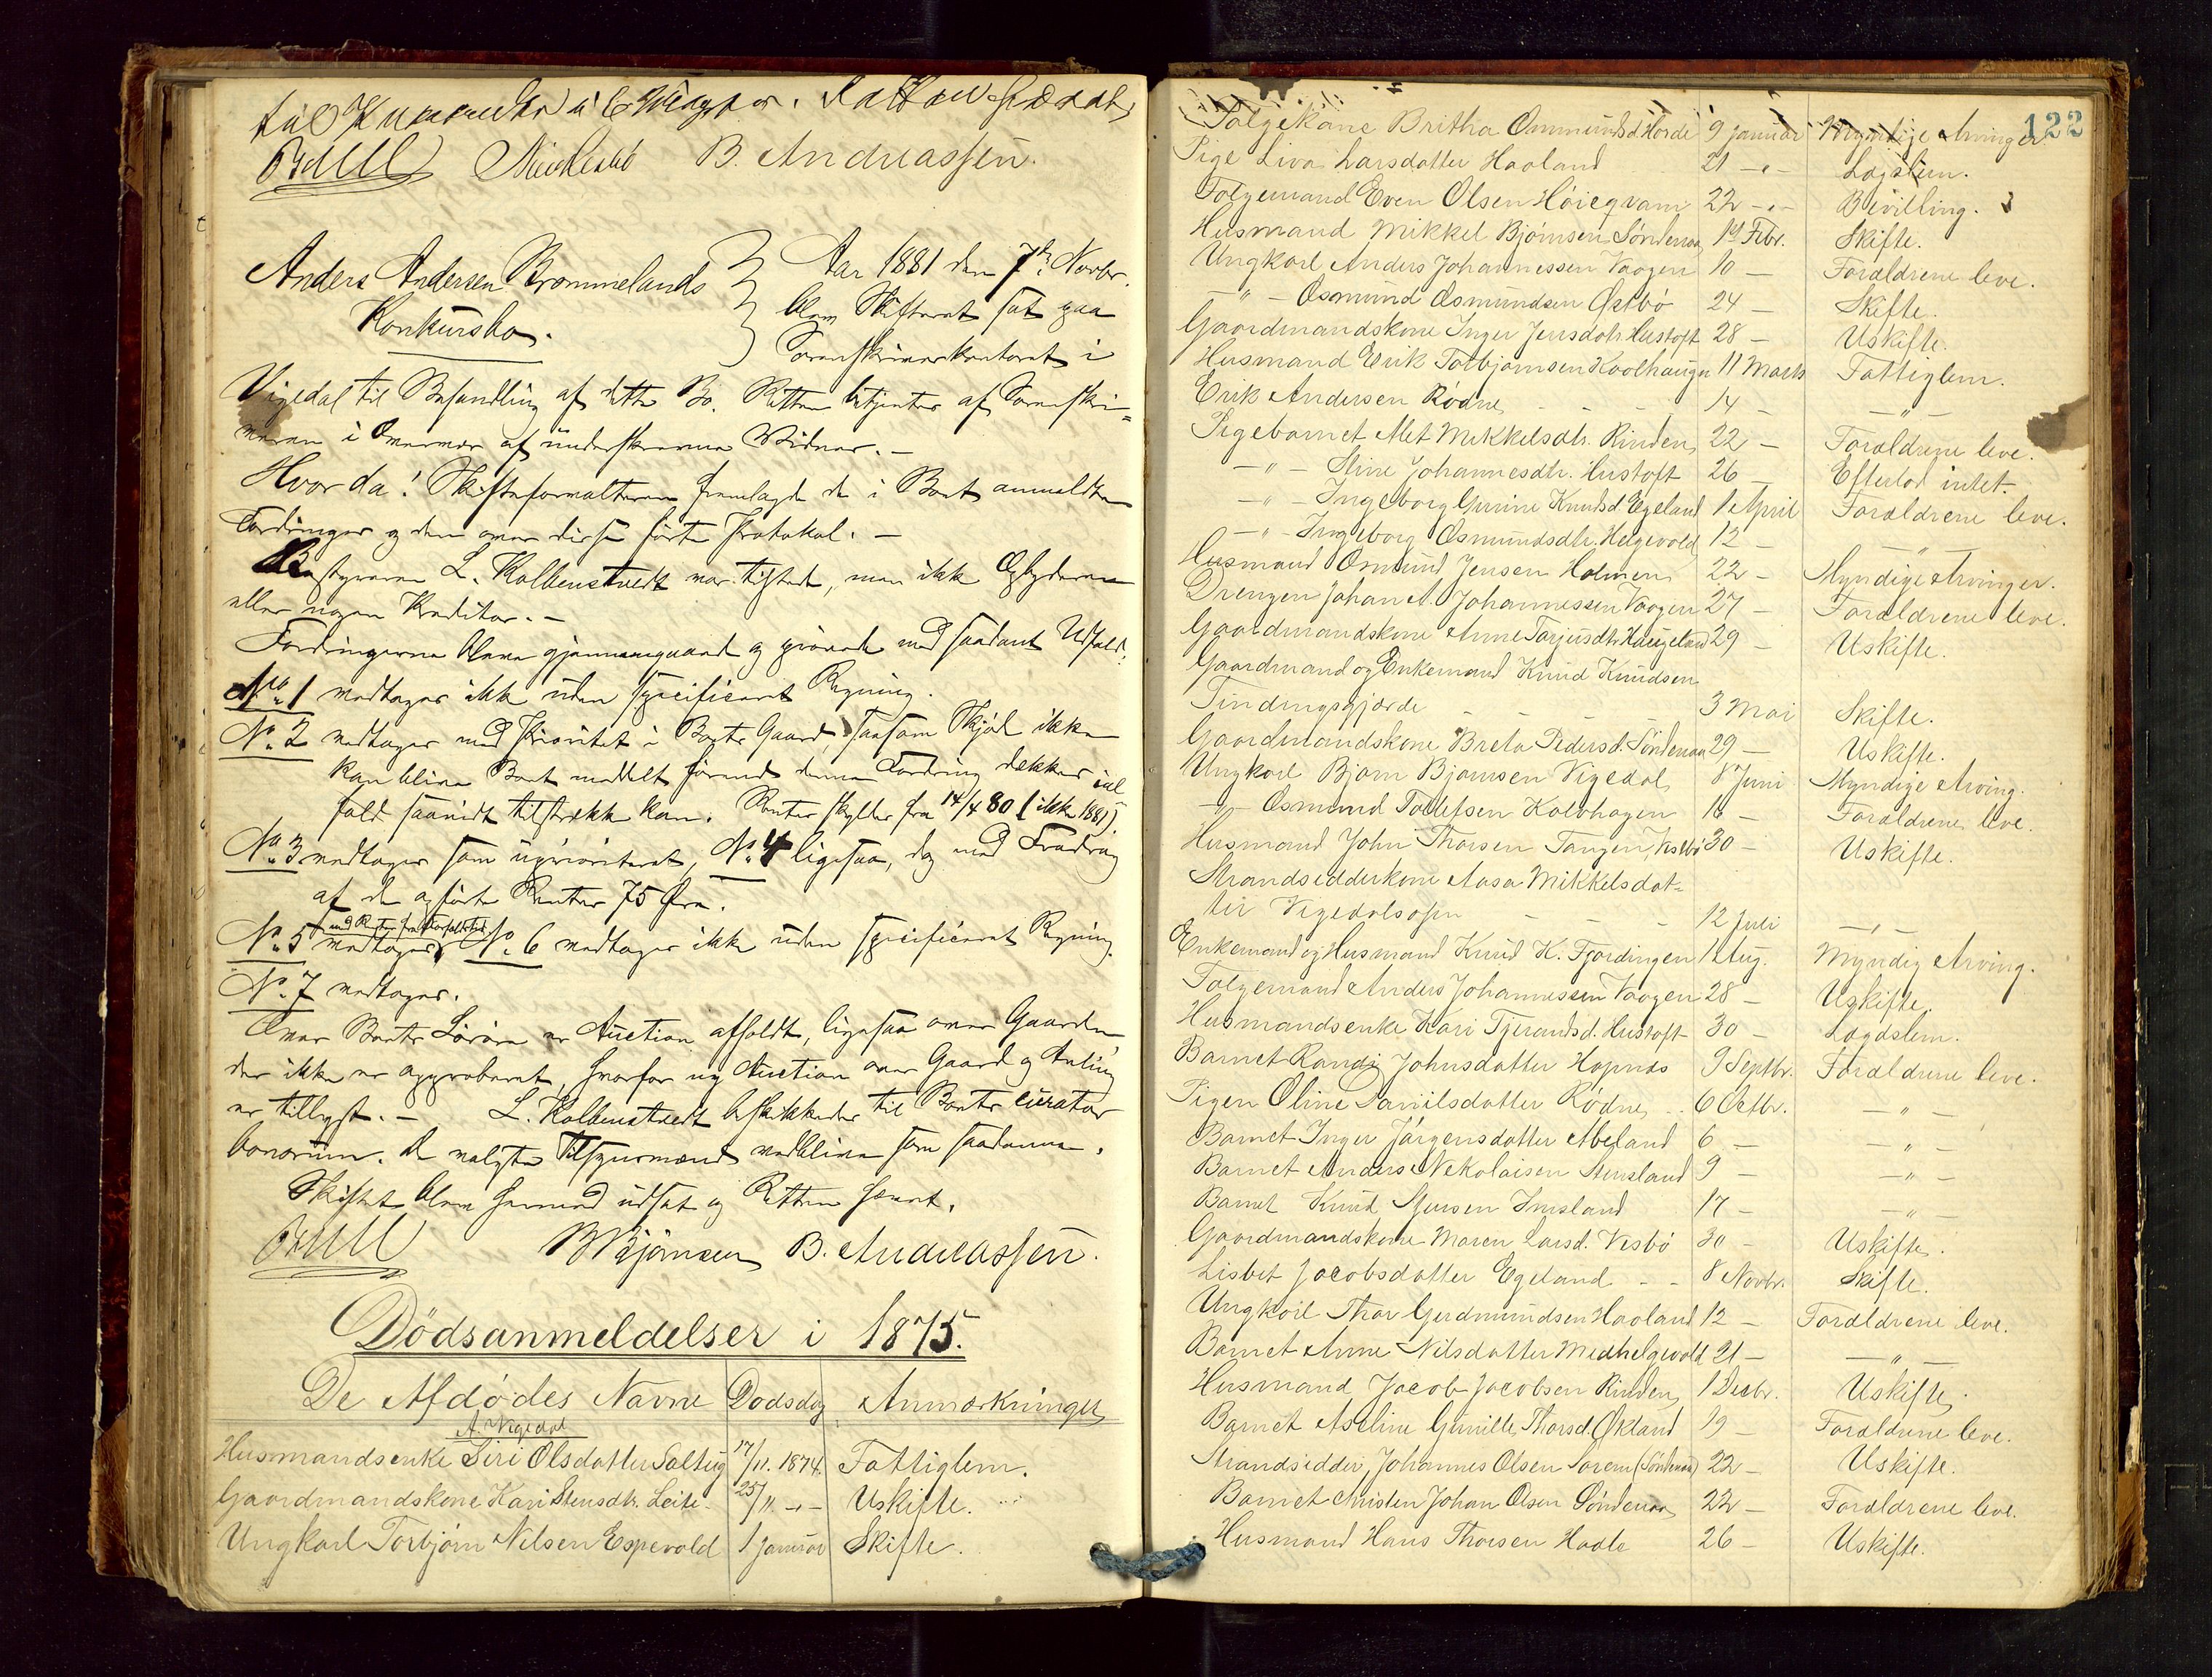 B. Andreassen.
Anders Andersen Brommelands
Konkursbo.
Aar 1881 den 7de Novbr.
blev Skifteret sat paa
Sorenskriverkontoret i
Vigedal til Behandling af dette Bo. Retten betjentes af Sorenskri-
veren i Overvær af underskrevne Vidner. -
Hvorda! Skifteforvalteren fremlagde de i Boet anmeldte
Fordringer og den over disse førte Protokol. -
Bestyreren L. Kolbenstvedt var tilstede, men ikke Opbyderen
eller nogen Kreditor. -
Fordringerne bleve gjennemgaaede og prøvede med saadant Udfald:
No. 1 modtages ikke uden specificeret Regning.
No. 2 modtages med Prioritet i Boets Gaard, saasom Skjøde ikke
kan blive Boet meddelt førend denne Fordring dækkes ial
fald saavidt tilstrække kan. Renter skyldes fra 14/4 80 (ikke 1881).
No. 3 modtages som uprioriteret, No. 4 ligesaa, dog med Fradrag
af de opførte Renter 75 Øre.
No. 5 modtages, No. 6 modtages ikke uden specificeret Regning.
No. 7 modtages.
Over Boets Løsøre er Auction afholdt, ligesaa over Gaarden
der ikke er approberet, hvorfor ny Auction over Gaard og Anling
er tillyst. - L. Kolbenstvedt beskikkedes til Boets curator
bonorum. De valgte Tilsynsmænd vedblive som saadanne.
Skiftet blev hermed udsat og Retten hævet.
B. Bjørnsen B. Andreassen.
Dödsanmeldelser i 1875.
De Afdødes Navne Dødsdag Anmærkninger
A. Vigedal
Husmandsenke Siri Olsdatter Saltug 17/11. 1874. Fattiglem.
Gaardmandskone Kari Stensdtr. Leite. 25/11 -"- Uskifte.
Ungkarl Torbjørn Nilsen Espevold 1 Januar Skifte.
122
Folgekone Britha Ommundsd. Horde 9 Januar Myndige Arvinger
Pige Liva Larsdatter Haaland 21 -"- Lægslem.
Folgemand Even Olsen Høieqvam 22 -"- Bevilling.
Husmand Mikkel Bjørnsen Søndenaa 1st Febr. Skifte.
Ungkarl Anders Johannessen Vaagen 10 - Forældrene leve.
-"- Osmund Osmundsen Østbø 24 - Skifte.
Gaardmandskone Inger Jensdotr. Hustoft 28 - Uskifte.
Husmand Erik Torbjørnsen Koolhaugen 11 Marts Fattiglem.
Erik Andersen Rødne - - - 14 - -"-
Pigebarnet Alet Mikkelsdtr. Rinden 22 - Forældrene leve.
-"- Stine Johannesdtr. Hustoft 26 - Efterlod intet.
-"- Ingeborg Gurine Knudsd. Egeland 1 April Forældrene leve.
-"- Ingeborg Osmundsdtr. Helgevold 12 - -"-
Husmand Osmund Jensen Holmen 22 - Myndige Arvinger.
Drengen Johan A. Johannessen Vaagen 27 - Forældrene leve.
Gaardmandskone Anne Tarjusdtr. Haugeland 29 - Uskifte.
Gaardmand og Enkemand Knud Knudsen
Tindingsgjærde - - - 3 Mai Skifte.
Gaardmandskone Breta Pedersd. Søndenaa 29 - Uskifte.
Ungkarl Bjørn Bjørnsen Vigedal 8 Juni Myndige Arving.
-"- Osmund Tollefsen Kolbhagen 16 - Forældrene leve.
Husmand John Thorsen Tangen, Vesbø 30 - Uskifte.
Strandsidderkone Aasa Mikkelsdat-
ter Vigedalsosen - - 12 Juli -"-
Enkemand og Husmand Knud K. Fjordingen 1 Aug. Myndig Arving.
Folgemand Anders Johannessen Vaagen 28 - Uskifte.
Husmandsenke Kari Tjerandsd. Hustoft 30 - Lægdslem.
Barnet Randi Johnsdatter Hopnæs 9 Septbr. Forældrene leve.
Pigen Oline Danielsdatter Rødne 6 Octbr. -"-
Barnet Inger Jørgensdatter Abeland 6 - -"-
Barnet Anders Nekolaisen Stensland 9 - -"-
Barnet Knud Stensen Imsland 17 - -"-
Gaardmandskone Maren Larsd. Vesbø 30 - Uskifte.
Lisbet Jacobsdatter Egeland - - 8 Novbr. Skifte.
Ungkarl Thor Gudmundsen Haaland 12 - Forældrene leve.
Barnet Anne Nilsdatter Medhelgevold 21 - -"-
Husmand Jacob Jacobsen Rinden 1 Decbr. Uskifte.
Barnet Aseline Gunille Thorsd. Økland 19 - Forældrene leve.
Strandsidder Johannes Olsen Sorem (Søndenaa) 22 - Uskifte.
Barnet Christen Johan Olsen Søndenaa 22 - Forældrene leve.
Husmand Hans Thorsen Hadle 26 - Uskifte.